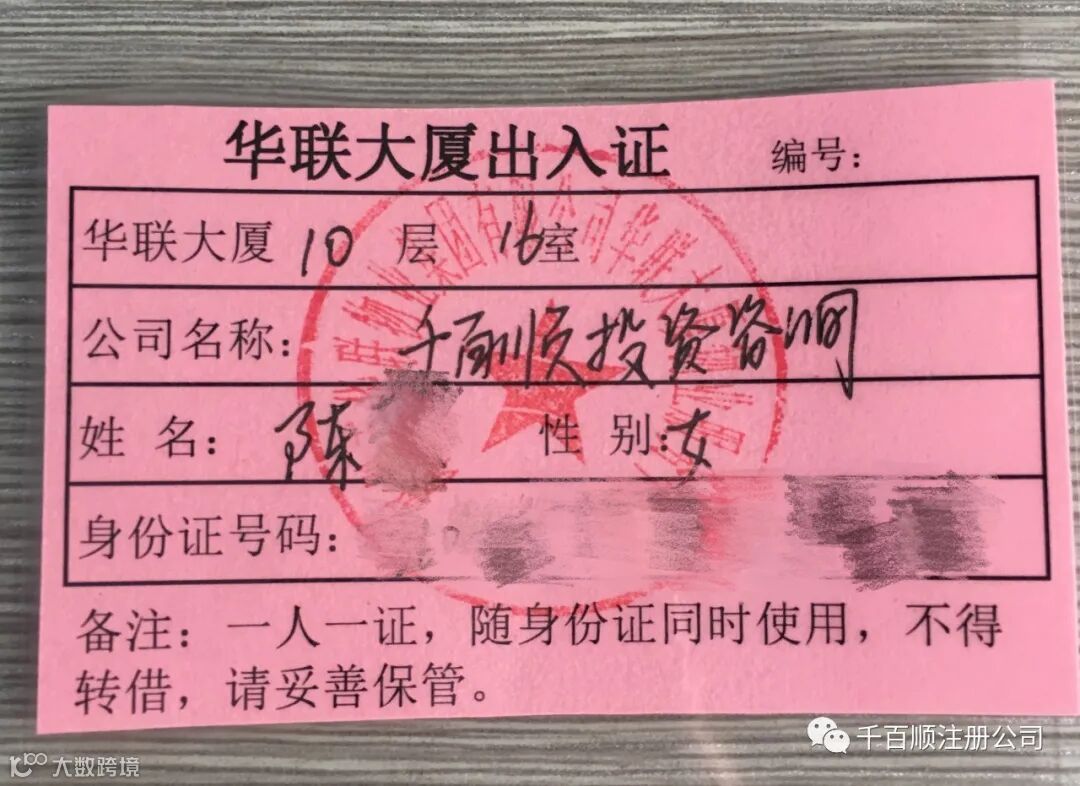 华联大厦出入证 编号：
华联大厦 10 层 16 室
公司名称： 千百顺投资咨询
姓 名： 陈 性 别：女
身份证号码：
备注：一人一证，随身份证同时使用，不得
转借，请妥善保管。
千百顺注册公司
大数跨境